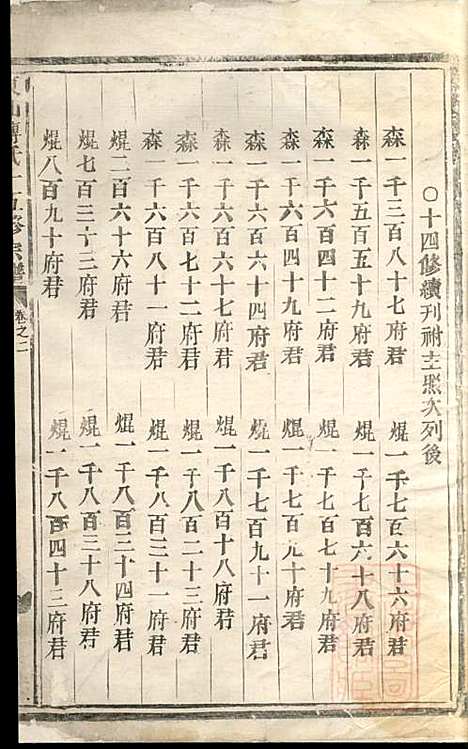 ○十四修續刊祔主照次列後
森一千三百八十七府君
焜一千七百六十六府君
森一千五百五十九府君
焜一千七百六十八府君
森一千六百四十二府君
焜一千七百七十九府君
森一千六百四十九府君
焜一千七百九十府君
森一千六百六十四府君
焜一千七百九十一府君
森一千六百六十七府君
焜一千八百十八府君
森一千六百七十二府君
焜一千八百二十三府君
森一千六百八十一府君
焜一千八百三十一府君
焜二百六十六府君
焜一千八百三十四府君
焜七百三十三府君
焜一千八百三十八府君
焜八百九十府君
焜一千八百四十三府君
山傅氏十五修宗譜
卷之二